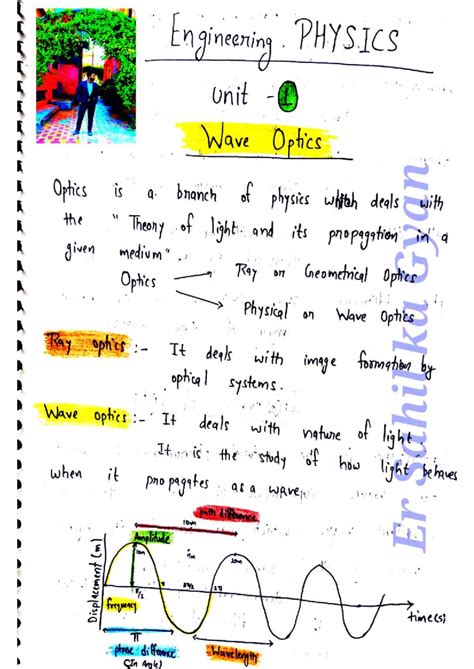 Engineering PHYSICS
Unit - 1
Wave Optics
Optics is a branch of physics which deals with
the " Theory of light and its propagation in a
given medium".
Optics → Ray or Geometrical Optics
→ Physical or Wave Optics
Ray optics :- It deals with image formation by
optical systems.
Wave optics :- It deals with nature of light
It is the study of how light behaves
when it propagates as a wave.
path difference
10m
Amplitude
Displacement (m)
10m
π/2
π
3π/2
2π
frequency
time(s)
π
phase difference
(in Angle)
Wavelength
Er Sahil ka Gyan